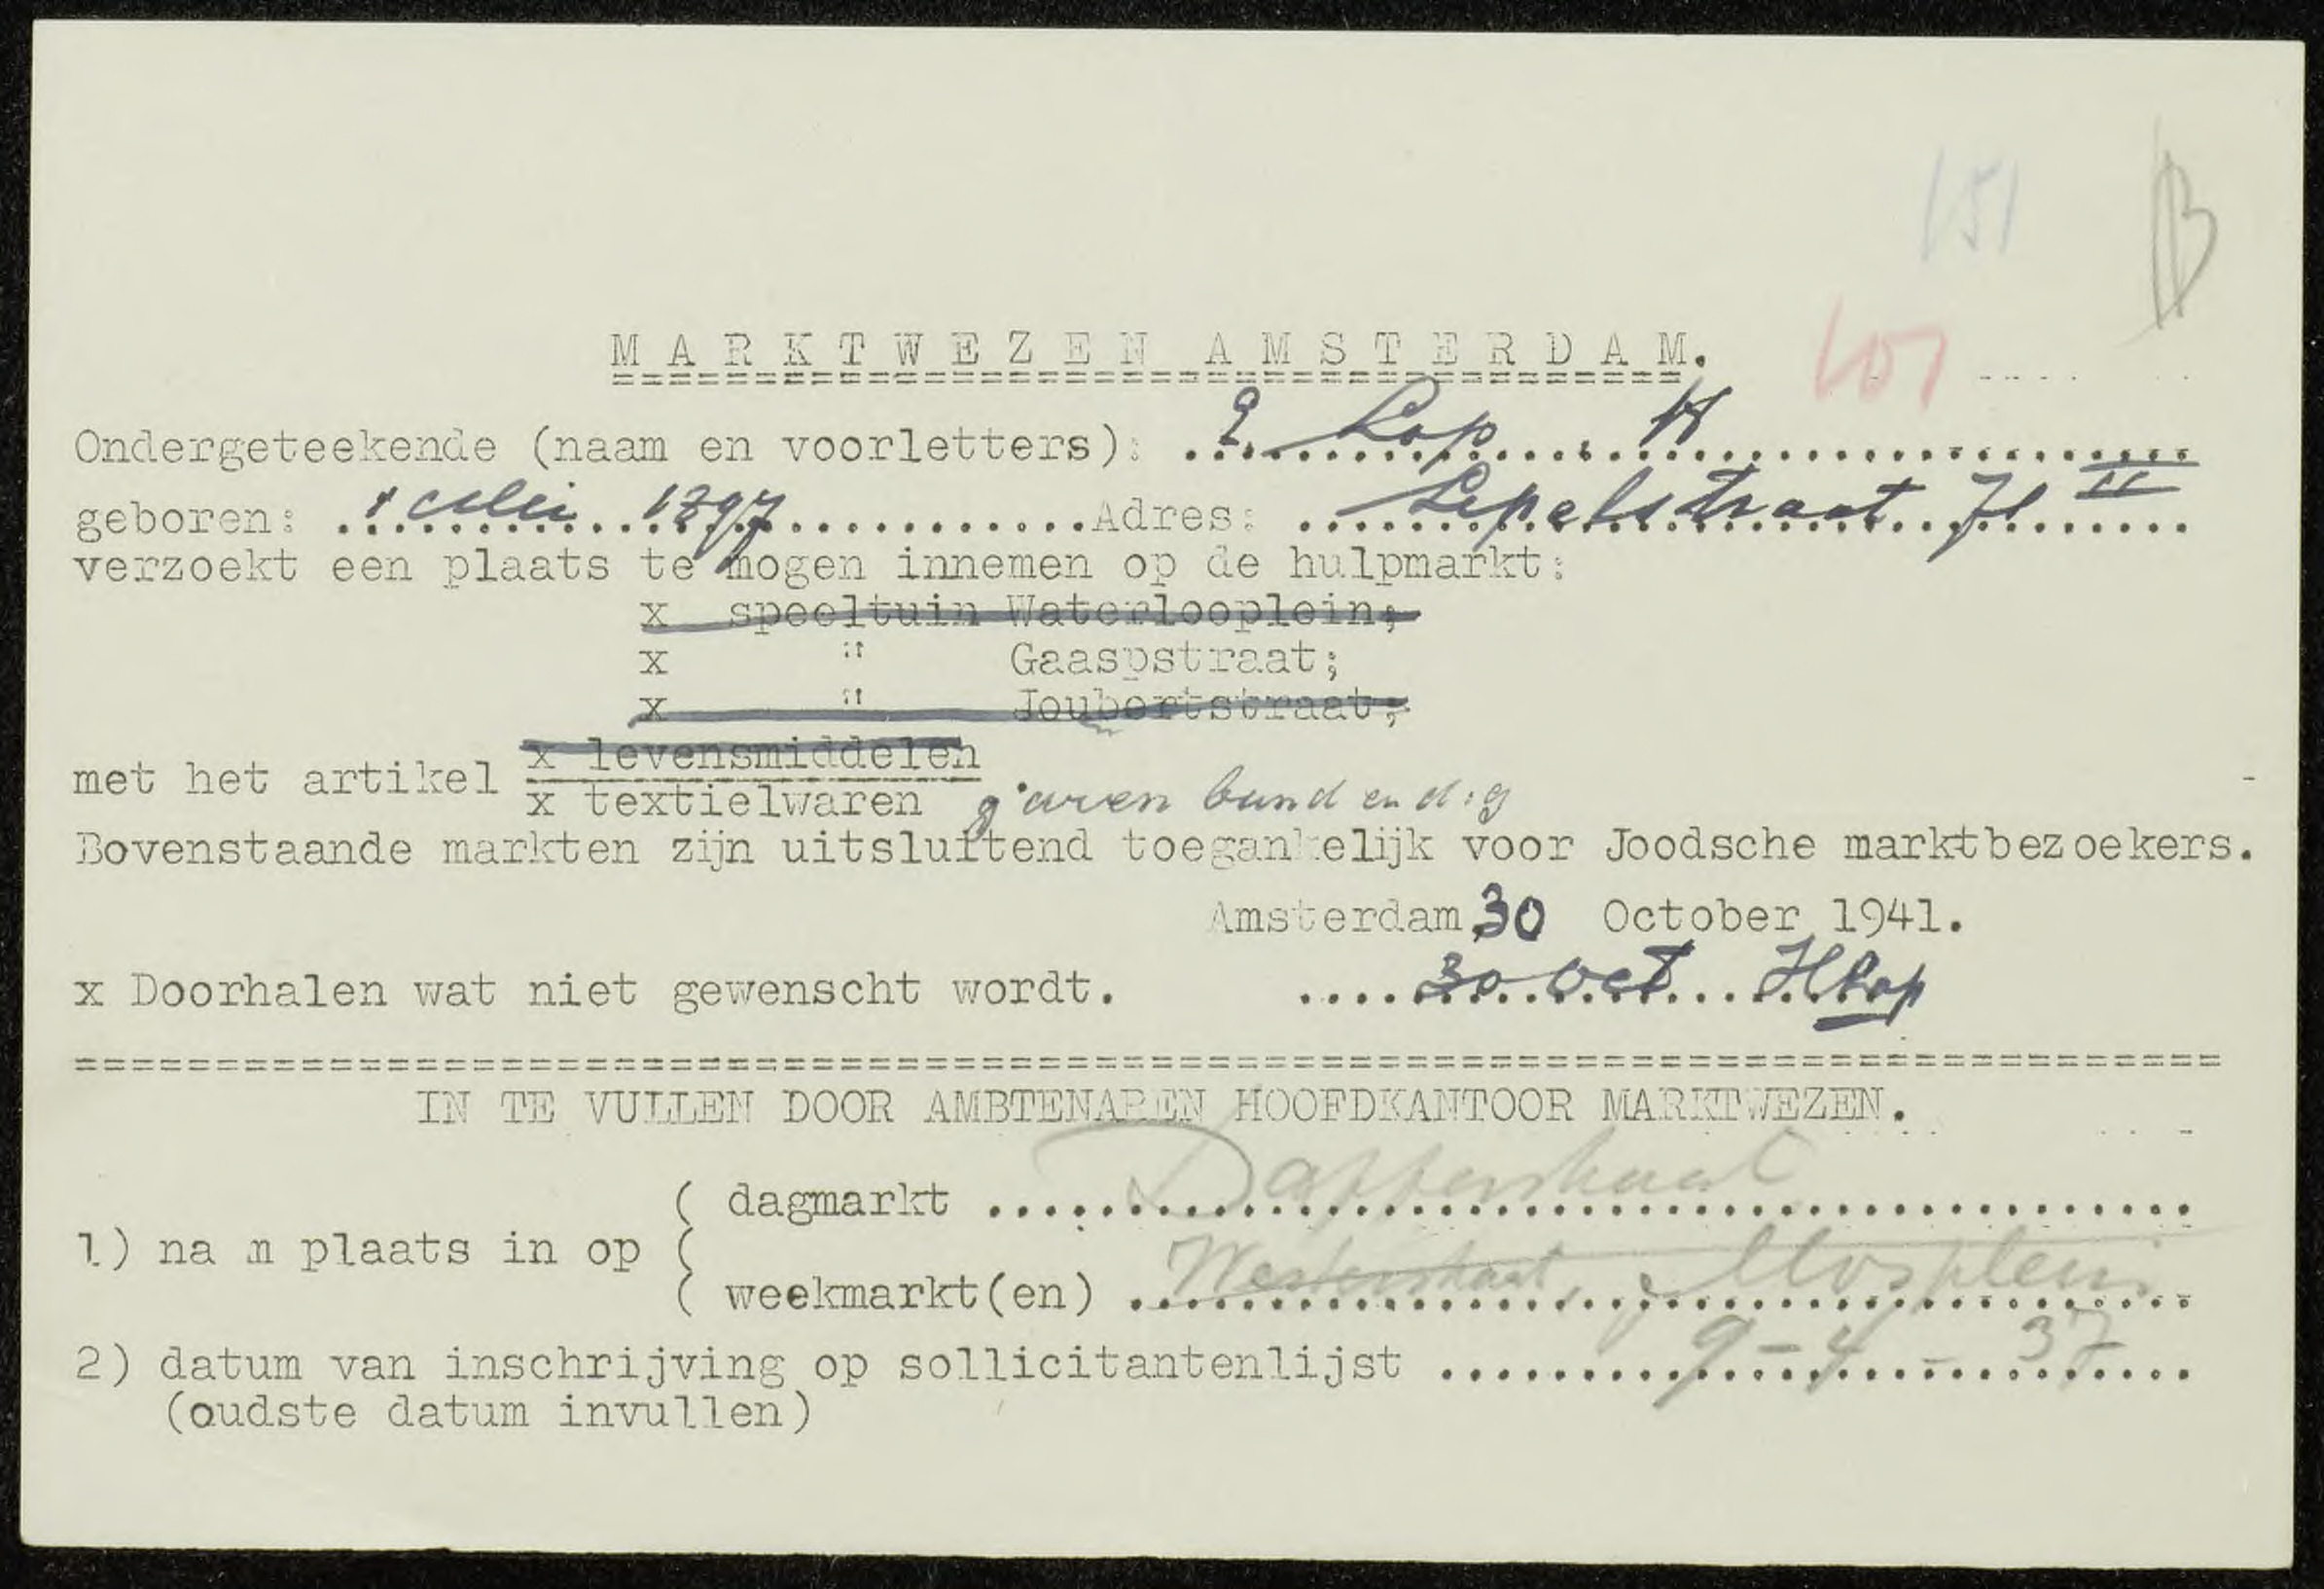 151 B
MARKTWEZEN AMSTERDAM. 107
Ondergeteekende (naam en voorletters): Lop. H
geboren: 1 Mei 1897 Adres: Lepelstraat 71 II
verzoekt een plaats te mogen innemen op de hulpmarkt:
x speeltuin Waterlooplein;
x " Gaaspstraat;
x " Joubertstraat;
x levensmiddelen
met het artikel
x textielwaren garen band en d.g
Bovenstaande markten zijn uitsluitend toegankelijk voor Joodsche marktbezoekers.
Amsterdam 30 October 1941.
x Doorhalen wat niet gewenscht wordt. 30 Oct HLop
IN TE VULLEN DOOR AMBTENAREN HOOFDKANTOOR MARKTWEZEN.
( dagmarkt Dapperstraat
1) na m plaats in op (
( weekmarkt(en) Westerstraat, Mosplein
2) datum van inschrijving op sollicitantenlijst 9-4-37
(oudste datum invullen)